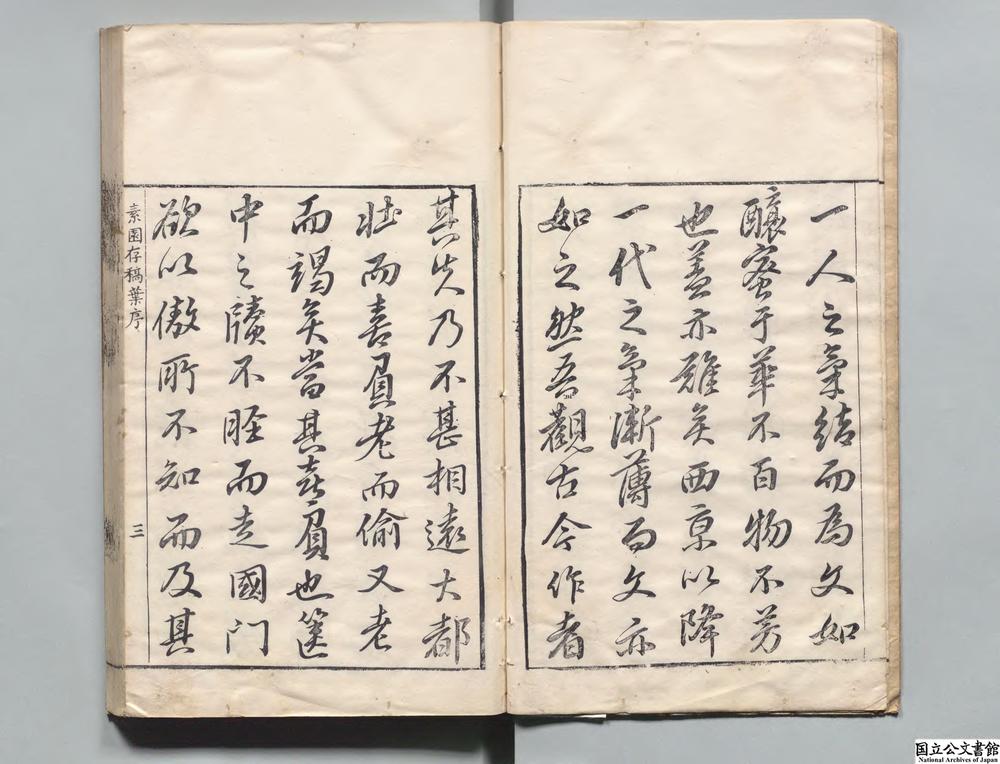 一人之氣結而為文如
釀蜜于華不百物不芳
也蓋亦難矣西京以降
一代之氣漸薄而文亦
如之然吾觀古今作者
其失乃不甚相遠大都
壯而喜眉老而偷又老
而竭矣當其喜眉也篋
中之牘不脛而走國門
欲以傲所不知而及其
素園存稿葉序
三
国立公文書館
National Archives of Japan